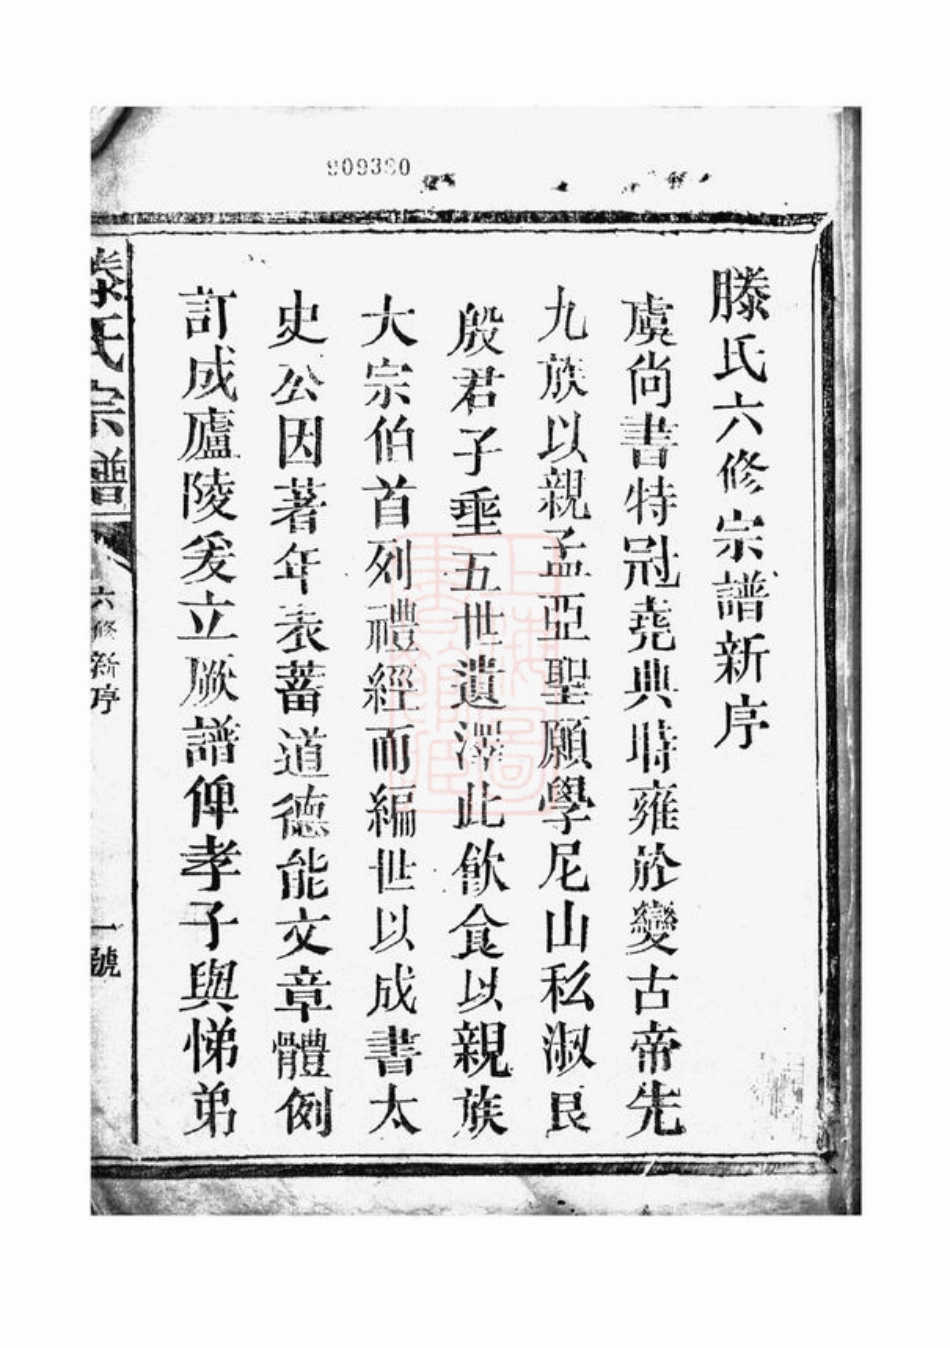 909380
滕氏六修宗譜新序
虞尚書特冠堯典時雍於變古帝先
九族以親孟亞聖願學尼山私淑良
殷君子垂五世遺澤此飲食以親族
大宗伯首列禮經而編世以成書太
史公因著年表蓄道德能文章體例
訂成廬陵爰立厥譜俾孝子與悌弟
滕氏宗譜
六修新序
一號